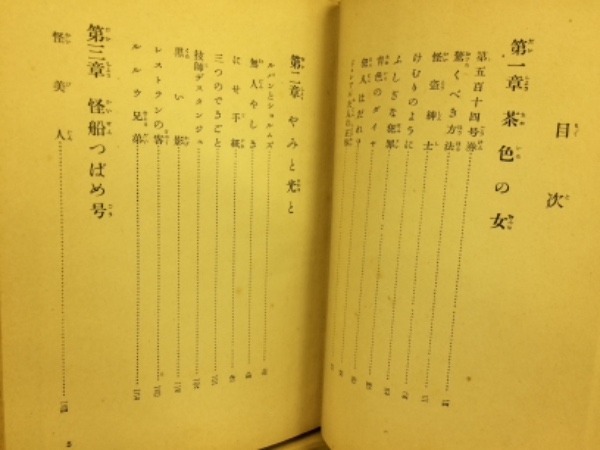 目次
第一章 茶色の女
第五百十四号券
驚くべき方法
怪盗紳士
けむりのように
ふしぎな犯罪
青色のダイヤ
犯人はだれ？
第二章 やみと光と
ルパンとショルムズ
無人やしき
にせ手紙
三つのできごと
技師デスタンジュ
黒い影
レストランの客
ルルウ兄弟
第三章 怪船つばめ号
怪美人